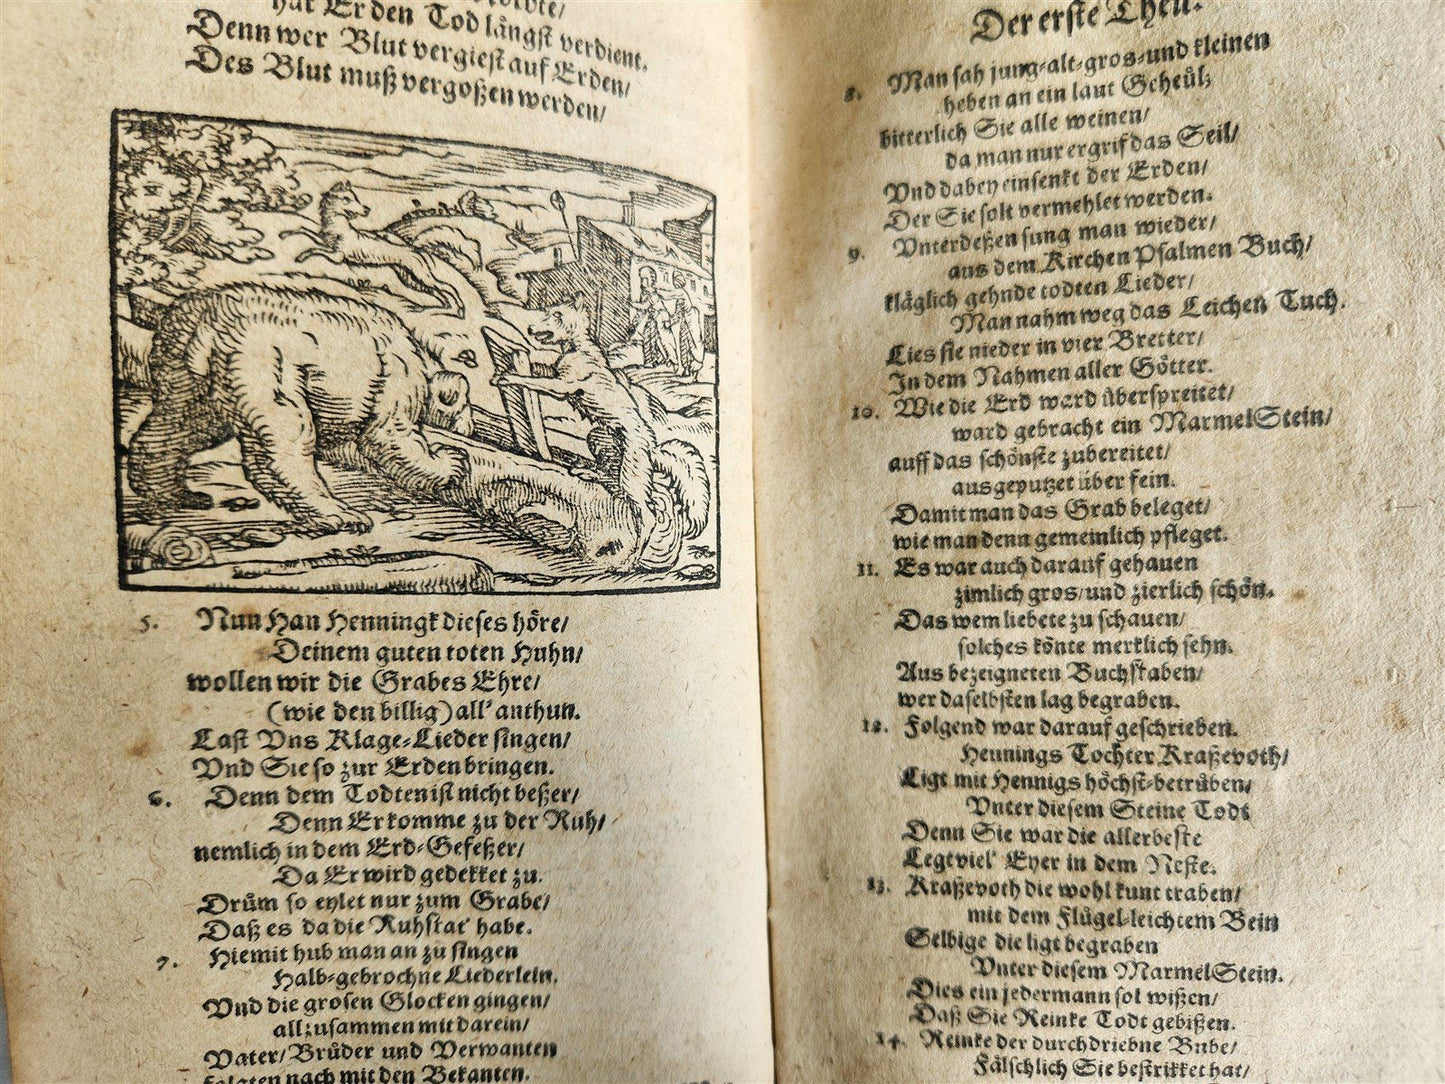 hat Er den Tod längst verdient.
Denn wer Blut vergiest auf Erden/
Des Blut muß vergoßen werden/
5. Nun Han Henningk dieses höre/
Deinem guten toten Huhn/
wollen wir die Grabes Ehre/
(wie den billig) all' anthun.
Last Vns Klage-Lieder singen/
Vnd Sie so zur Erden bringen.
6. Denn dem Todten ist nicht beßer/
Denn Er komme zu der Ruh/
nemlich in dem Erd-Gefeßer/
Da Er wird gedekket zu.
Drüm so eylet nur zum Grabe/
Daß es da die Ruhstat' habe.
7. Hiemit hub man an zu singen
Halb-gebrochne Liederlein.
Vnd die grosen Glocken gingen/
allzusammen mit darein/
Vater/ Brüder und Verwanten
folgten nach mit den Bekanten.
Der erste Theil.
8. Man sah jung-alt-gros-und kleinen
heben an ein laut Geheül;
bitterlich Sie alle weinen/
da man nur ergrif das Seil/
Vnd dabey einsenkt der Erden/
Der Sie solt vermehlet werden.
9. Vnterdeßen sung man wieder/
aus dem Kirchen Psalmen Buch/
kläglich gehnde todten Lieder/
Man nahm weg das Leichen Tuch.
Lies sie nieder in vier Bretter/
In dem Nahmen aller Götter.
10. Wie die Erd ward überspreitet/
ward gebracht ein MarmelStein/
auff das schönste zubereitet/
ausgeputzet über fein.
Damit man das Grab beleget/
wie man denn gemeinlich pfleget.
11. Es war auch darauf gehauen
zimlich gros/und zierlich schön.
Das wem liebete zu schauen/
solches könte merklich sehn.
Aus bezeigneten Buchstaben/
wer daselbsten lag begraben.
12. Folgend war darauf geschrieben.
Hennings Tochter Kraßevoth/
Ligt mit Hennigs höchst-betrüben/
Vnter diesem Steine Todt
Denn Sie war die allerbeste
Legt viel' Eyer in dem Neste.
13. Kraßevoth die wohl kunt traben/
mit dem Flügel-leichtem Bein
Selbige die ligt begraben
Vnter diesem MarmelStein.
Dies ein jedermann sol wißen/
Daß Sie Reinke Todt gebißen.
14. Reinke der durchdriebne Bube/
Fälschlich Sie bestrikket hat/